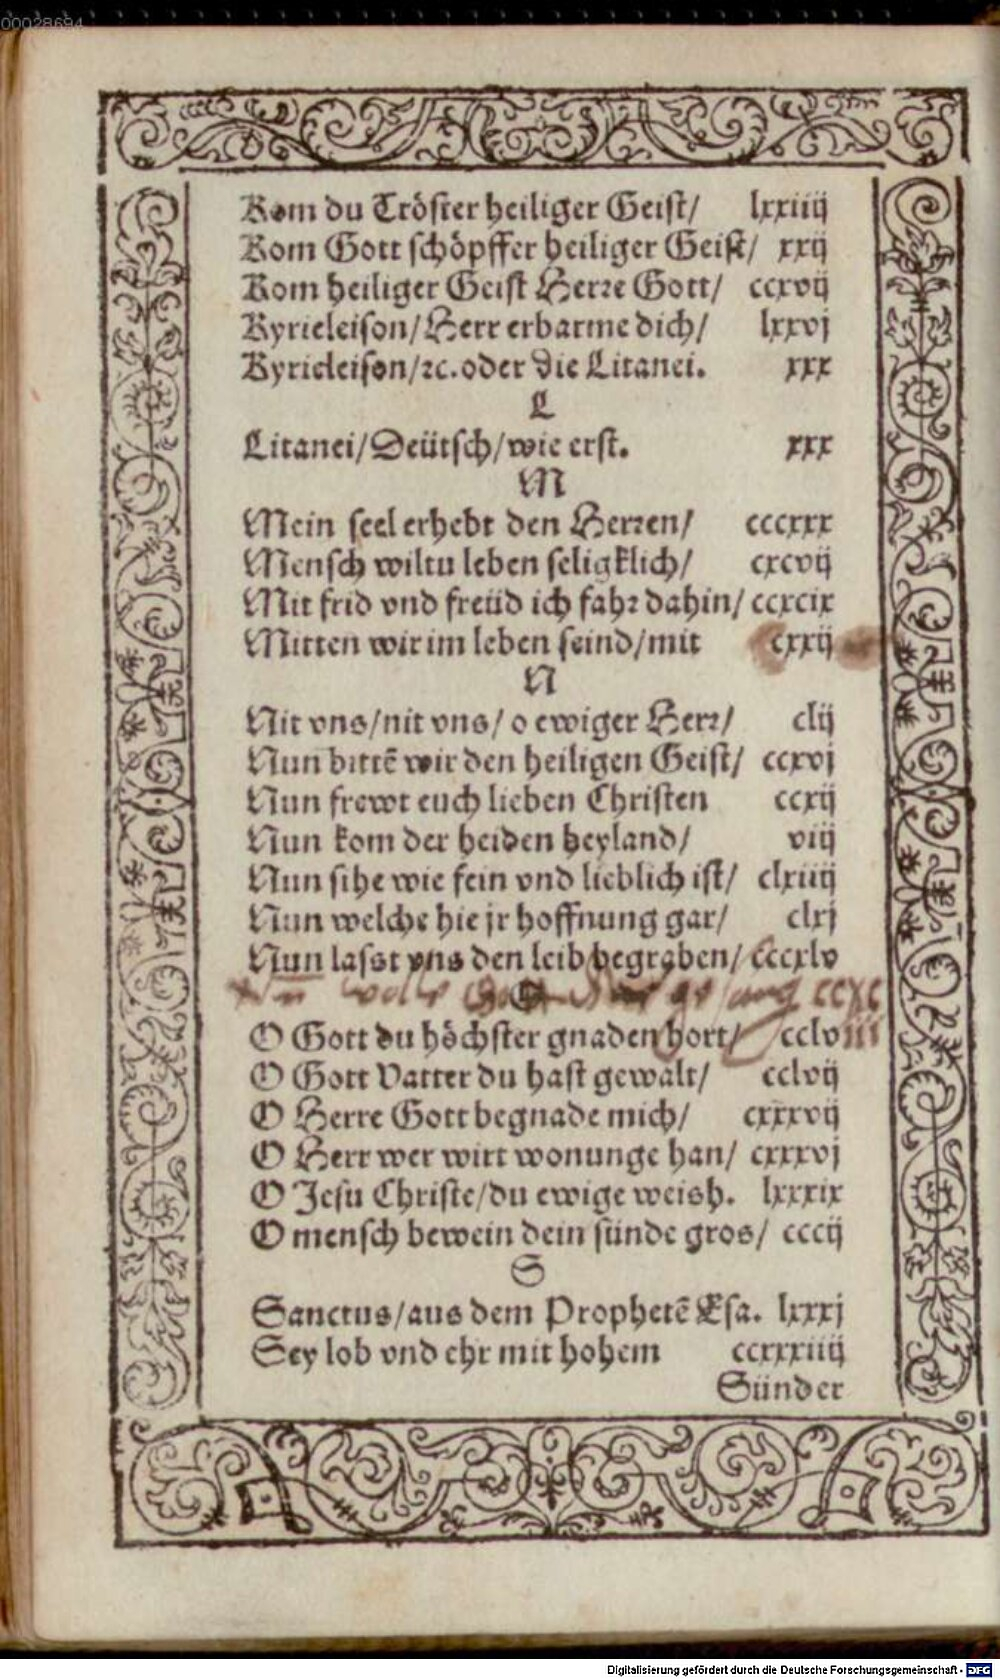 00028694
Kom du Tröster heiliger Geist/ lxxiiij
Kom Gott schöpffer heiliger Geist/ xxij
Kom heiliger Geist Herre Gott/ ccxvij
Kyrieleison/Herr erbarme dich/ lxxvj
Kyrieleison/ꝛc. oder die Litanei. xxx
L
Litanei/Deütsch/wie erst. xxx
M
Mein seel erhebt den Herren/ cccxxx
Mensch wiltu leben seligklich/ cxcvij
Mit frid vnd freüd ich fahr dahin/ ccxcix
Mitten wir im leben seind/mit cxxij
N
Nit vns/nit vns/ o ewiger Herr/ clij
Nun bittē wir den heiligen Geist/ ccxvj
Nun frewt euch lieben Christen ccxij
Nun kom der heiden heyland/ viij
Nun sihe wie fein vnd lieblich ist/ clxiiij
Nun welche hie jr hoffnung gar/ clxj
Nun lasst vns den leib begraben/ cccxlv
Nun wolle Gott gesang ccxc iii
O
O Gott du höchster gnaden hort/ cclv
O Gott Vatter du hast gewalt/ cclvij
O Herre Gott begnade mich/ cxxxvij
O Herr wer wirt wonunge han/ cxxxvj
O Jesu Christe/du ewige weish. lxxxix
O mensch bewein dein sünde gros/ cccij
S
Sanctus/aus dem Prophetē Esa. lxxxj
Sey lob vnd ehr mit hohem ccxxxiiij
Sünder
Digitalisierung gefördert durch die Deutsche Forschungsgemeinschaft - DFG